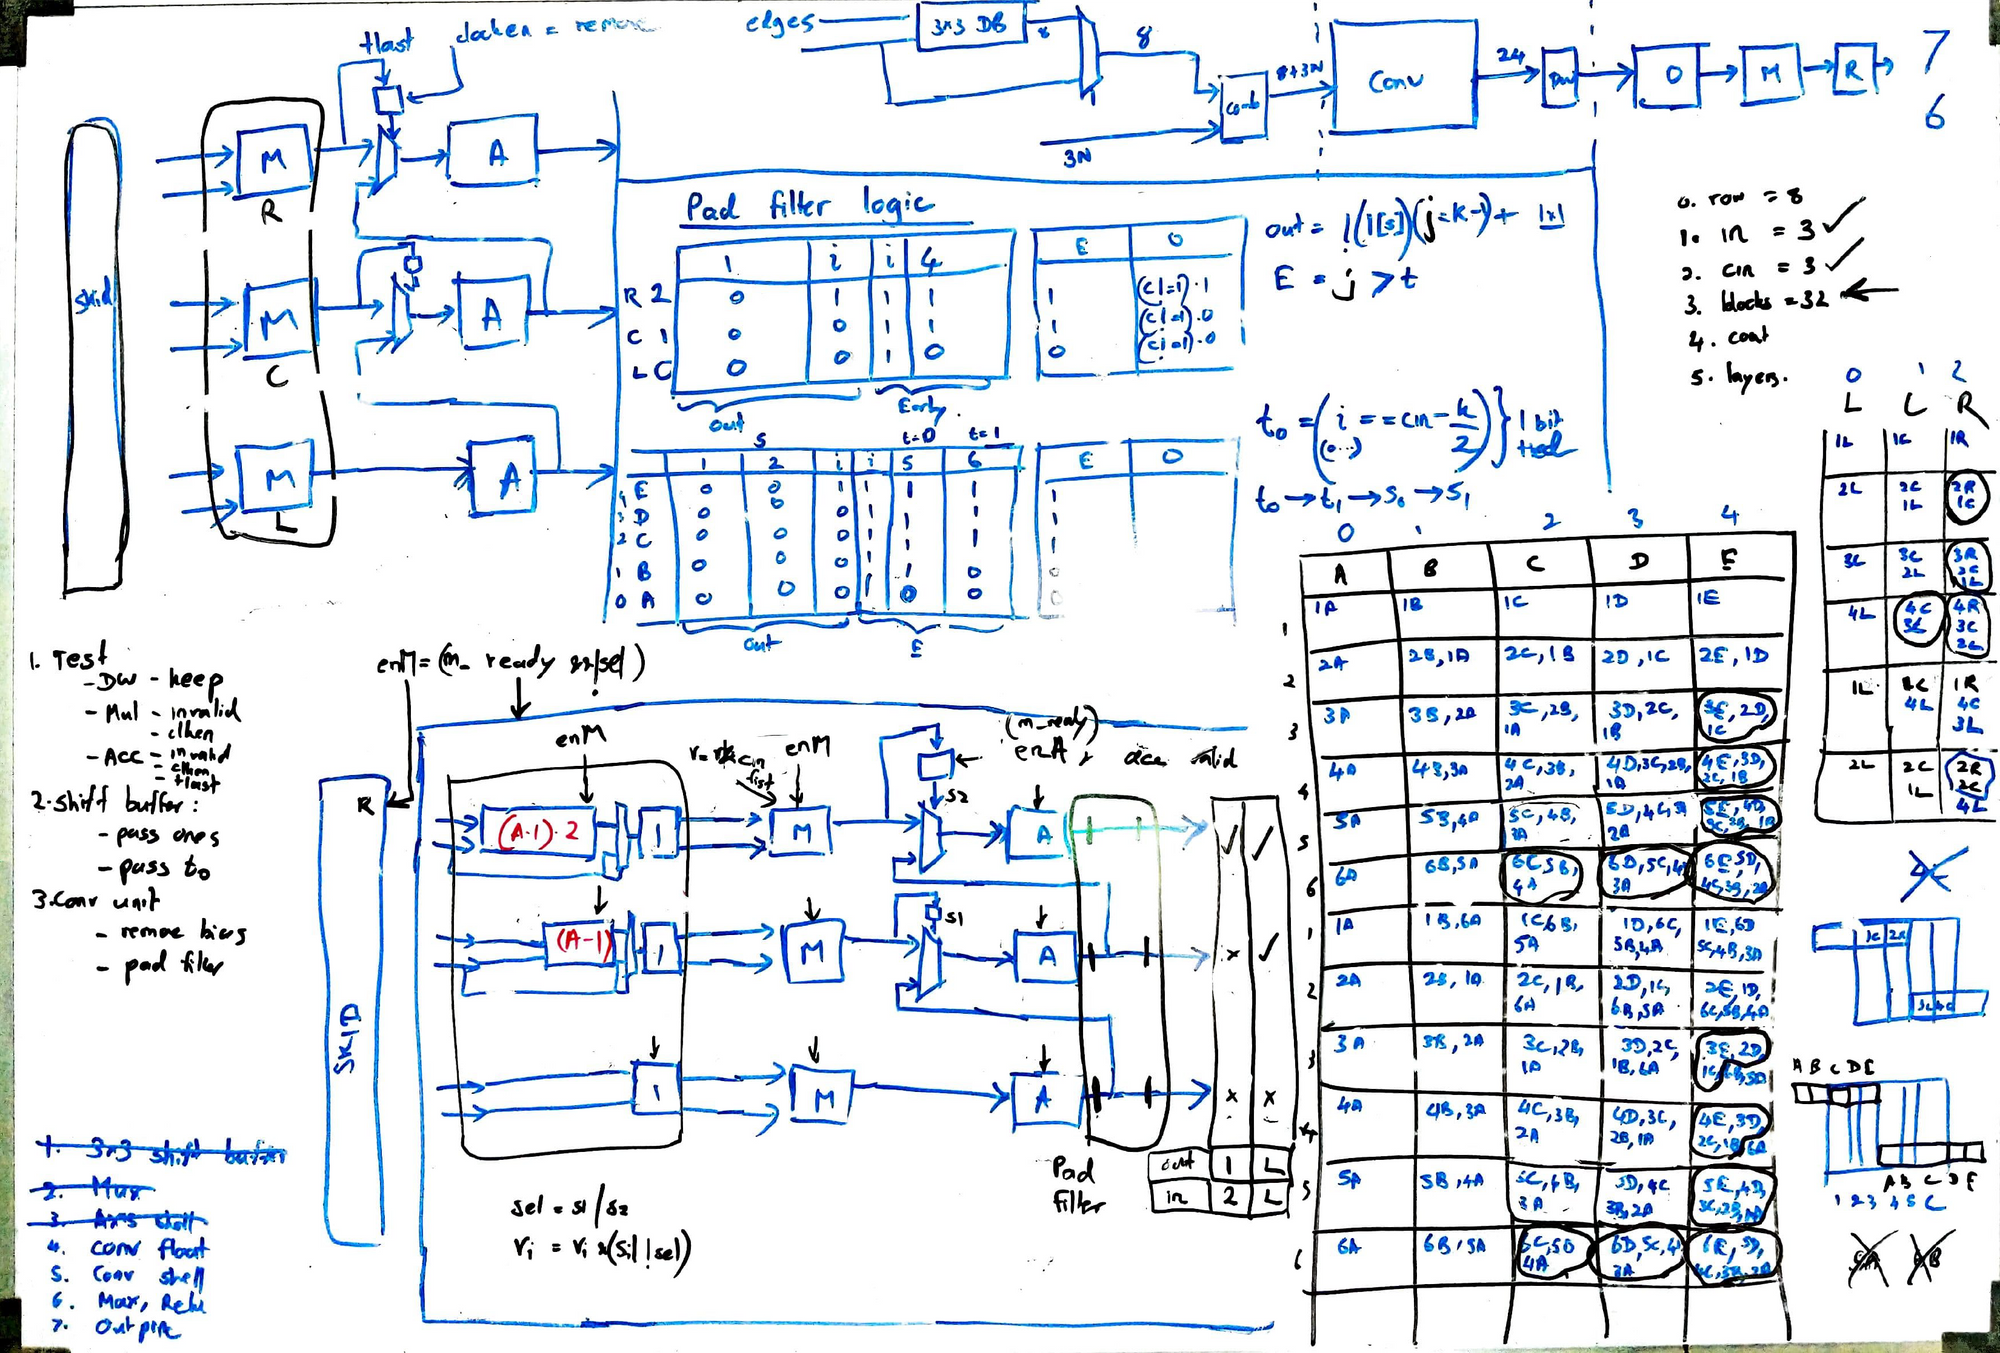 tlast
edges
3x3 DB
8
8
8+3N
Comb
3N
Conv
24
DW
O
M
R
7
6
skid
M
R
A
M
C
A
M
L
A
Pad filter logic
1 i i 4
R 2 0 1 1 1
C 1 0 0 1 1
L 0 0 0 1 0
out
Early
E O
1
1
0
E = j > t
0. row = 8
1. in = 3 ✓
2. cin = 3 ✓
3. blocks = 32 ←
4. cout
5. layers.
s t=0 t=1
1 2 i i 5 6
4 E 0 0 1 1 1 1
3 D 0 0 0 1 1 1
2 C 0 0 0 1 1 1
1 B 0 0 0 1 1 0
0 A 0 0 0 1 0 0
out
E
E O
1
1
1
0
0
t0 = (i == cin - k/2) } 1 bit
t0 → t1 → s0 → s1
0 1 2
L C R
1L 1C 1R
2L 2C 1L 2R 1C
3L 3C 2L 3R 2C 1L
4L 4C 3L 4R 3C 2L
1L 1C 4L 1R 4C 3L
2L 2C 1L 2R 1C 4L
0 1 2 3 4
A B C D E
1 1A 1B 1C 1D 1E
2 2A 2B, 1A 2C, 1B 2D, 1C 2E, 1D
3 3A 3B, 2A 3C, 2B, 1A 3D, 2C, 1B 3E, 2D, 1C
4 4A 4B, 3A 4C, 3B, 2A 4D, 3C, 2B, 1A 4E, 3D, 2C, 1B
5 5A 5B, 4A 5C, 4B, 3A 5D, 4C, 3B, 2A 5E, 4D, 3C, 2B, 1A
6 6A 6B, 5A 6C, 5B, 4A 6D, 5C, 4B, 3A 6E, 5D, 4C, 3B, 2A
1 1A 1B, 6A 1C, 6B, 5A 1D, 6C, 5B, 4A 1E, 6D, 5C, 4B, 3A
2 2A 2B, 1A 2C, 1B, 6A 2D, 1C, 6B, 5A 2E, 1D, 6C, 5B, 4A
3 3A 3B, 2A 3C, 2B, 1A 3D, 2C, 1B, 6A 3E, 2D, 1C, 6B, 5A
4 4A 4B, 3A 4C, 3B, 2A 4D, 3C, 2B, 1A 4E, 3D, 2C, 1B, 6A
5 5A 5B, 4A 5C, 4B, 3A 5D, 4C, 3B, 2A 5E, 4D, 3C, 2B, 1A
6 6A 6B, 5A 6C, 5B, 4A 6D, 5C, 4B, 3A 6E, 5D, 4C, 3B, 2A
A B C D E
A B C D E
1 2 3 4 5 6
1. Test
- DW - keep
- Mul - invalid
- clken
- Acc - invalid
- clken
- tlast
2. shift buffer:
- pass ones
- pass t0
3. Conv unit
- remove bias
- pad filter
1. 3x3 shift buffer
2. Mux
3. Axis shell
4. Conv float
5. Conv shell
6. Max, Relu
7. Out pipe
SKID
R
enM
(A-1)·2
1
enM
M
S2
(m_ready)
enA
A
valid
(A-1)
1
M
S1
A
1
M
A
Pad
filter
out 1 L
in 2 L
sel = s1 / s2